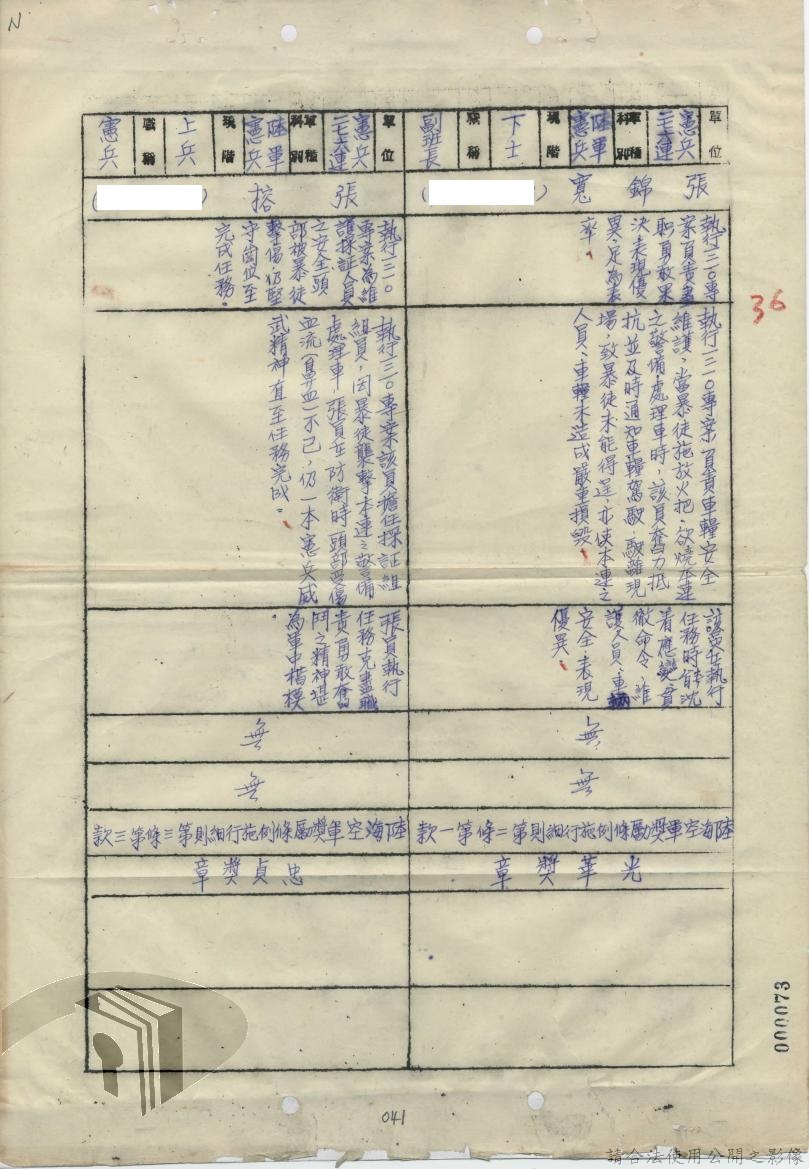 N
單位
憲兵
二七六連
軍種
科別
陸軍
憲兵
現階
下士
職稱
副班長
張錦寬
(　)
執行三一〇專
案負責盡
職勇敢果
決表現優
異、足為表
率。
執行三一〇專案負責車輛安全
維護、當暴徒施放火把、欲燒本連
之警備處理車時，該員奮力抵
抗並及時通知車輛駕駛，駛離現
場，致暴徒未能得逞，亦使本連之
人員、車輛未造成嚴重損毀。
該員在執行
任務時能沈
着應變貫
徹命令、維
護人員、車輛
安全表現
優異。
無
無
陸海空軍獎勵條例施行細則第二條第一款
光華獎章
單位
憲兵
二七六連
軍種
科別
陸軍
憲兵
現階
上兵
職稱
憲兵
張榕
(　)
執行三一〇
專案為維
護採証人員
之安全頭
部被暴徒
擊傷仍堅
守崗位至
完成任務。
執行三一〇專案該員擔任採証組
組員，因暴徒襲擊本連之警備
處理車，張員在防衛時頭部受傷
血流(鼻血)不已，仍一本憲兵威
武精神直至任務完成。
張員執行
任務克盡職
責勇敢奮
鬥之精神堪
為軍中楷模。
無
無
陸海空軍獎勵條例施行細則第三條第三款
忠貞獎章
36
000073
041
請合法使用公開之影像